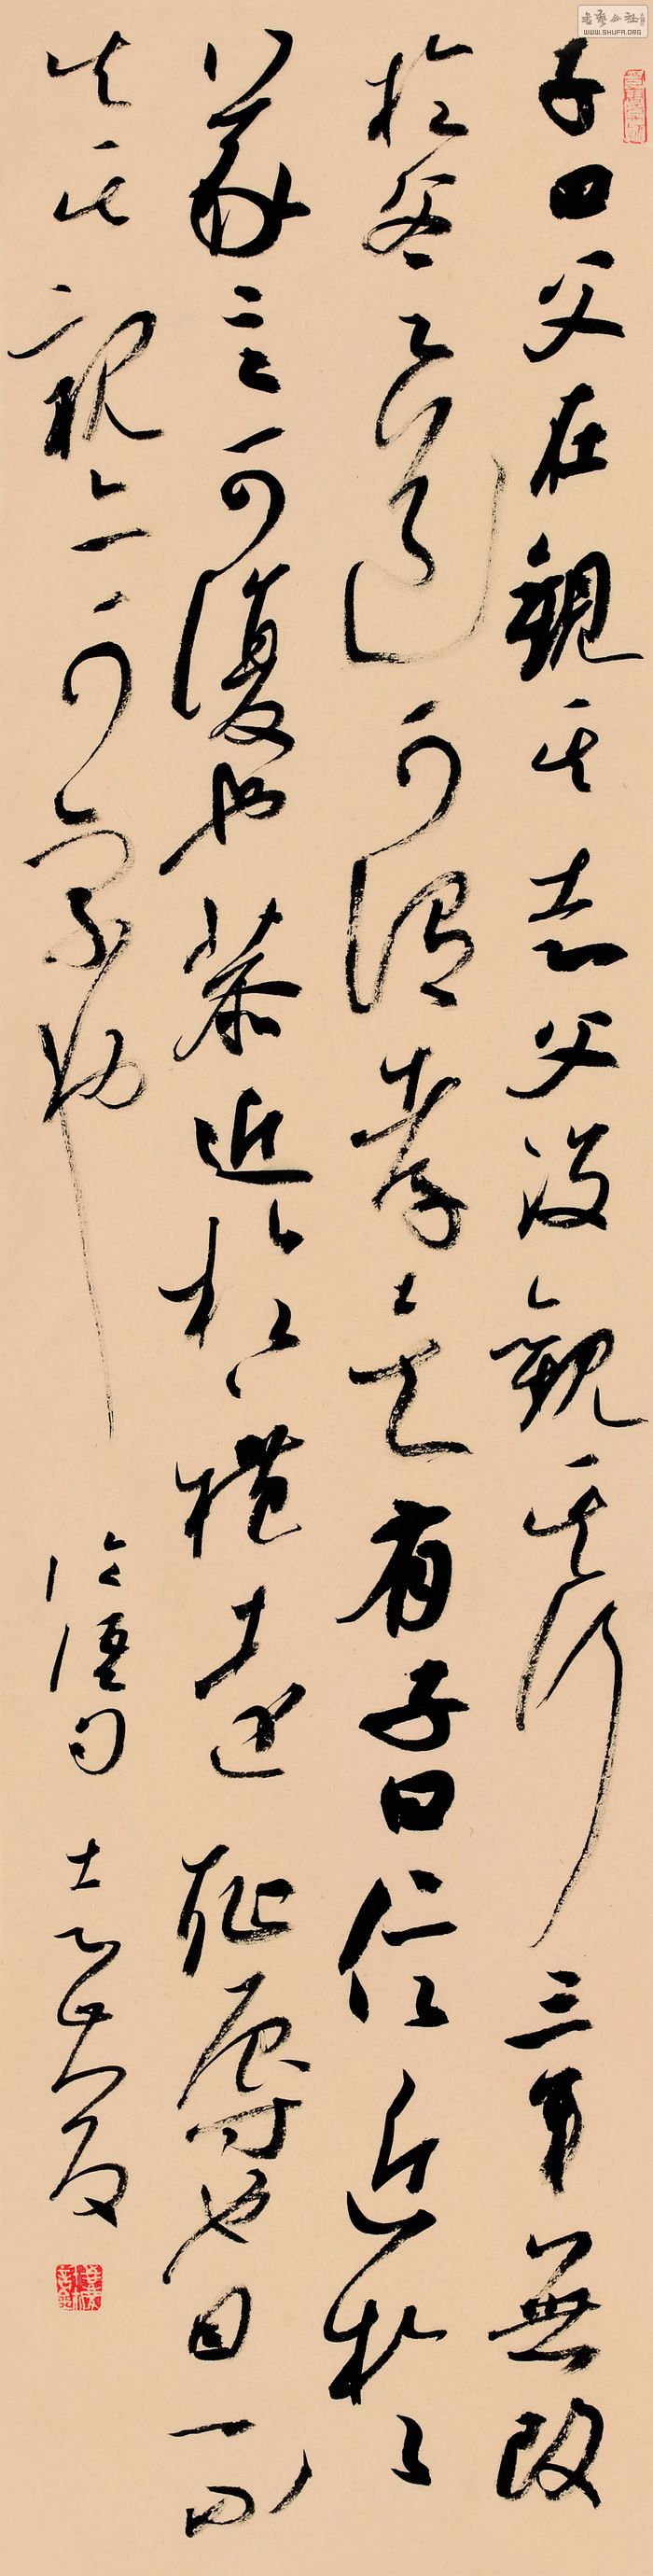 书艺公社
WWW.SHUFA.ORG
子曰父在觀其志父沒觀其行三年無改
於父之道可謂孝矣有子曰信近於
義言可復也恭近於禮遠恥辱也因不
失其親亦可宗也
論語句